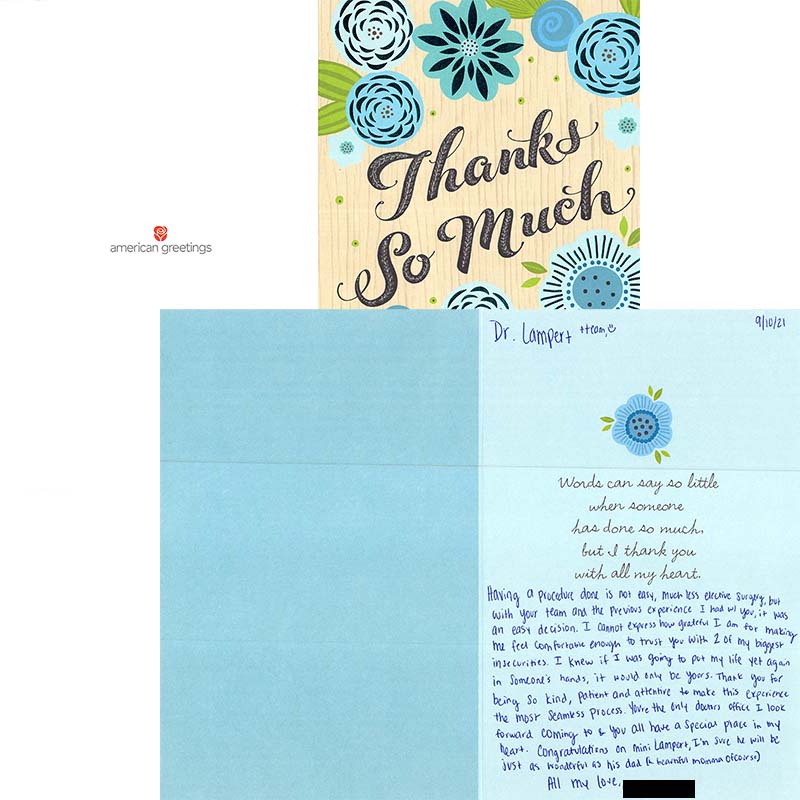 Thanks
So Much
american greetings
Dr. Lampert + team, ☺
9/10/21
Words can say so little
when someone
has done so much,
but I thank you
with all my heart.
Having a procedure done is not easy, much less elective surgery, but
with your team and the previous experience I had w/ you, it was
an easy decision. I cannot express how grateful I am for making
me feel comfortable enough to trust you with 2 of my biggest
insecurities. I knew if I was going to put my life yet again
in someone's hands, it would only be yours. Thank you for
being so kind, patient and attentive to make this experience
the most seamless process. You're the only doctors office I look
forward coming to & you all have a special place in my
heart. Congratulations on mini Lampert, I'm sure he will be
just as wonderful as his dad (& beautiful momma ofcourse)
All my love,